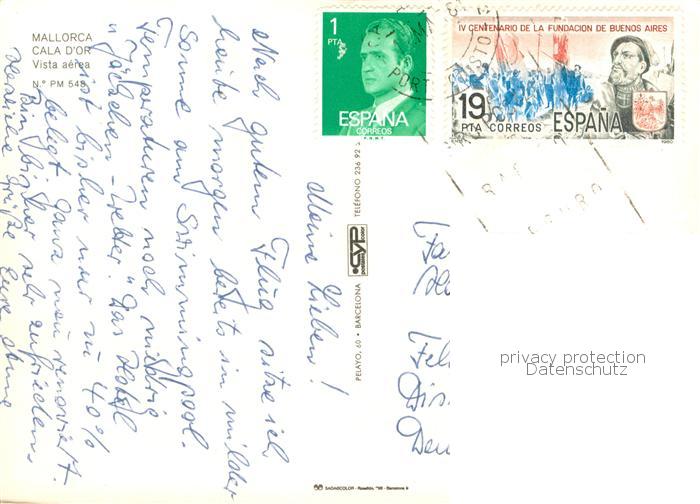 MALLORCA
CALA D'OR
Vista aérea
N.º PM 548
1
PTA
ESPAÑA
CORREOS
F.N.M.T.
IV CENTENARIO DE LA FUNDACION DE BUENOS AIRES
19
PTA CORREOS ESPAÑA
1980
Meine Lieben!
Nach gutem Flug sitze ich
heute morgen bereits in milder
Sonne am Swimmingpool.
Temperaturen noch niedrig
"Jäckchen-Wetter". Das Hotel
ist bisher nur zu 40%
belegt. Ganz neu renoviert.
Bin bisher sehr zufrieden.
Herzliche Grüße Eure
PELAYO, 60 • BARCELONA
CYP
TELÉFONO 236 92
SADAGCOLOR - Rosellón, - Barcelona
privacy protection
Datenschutz